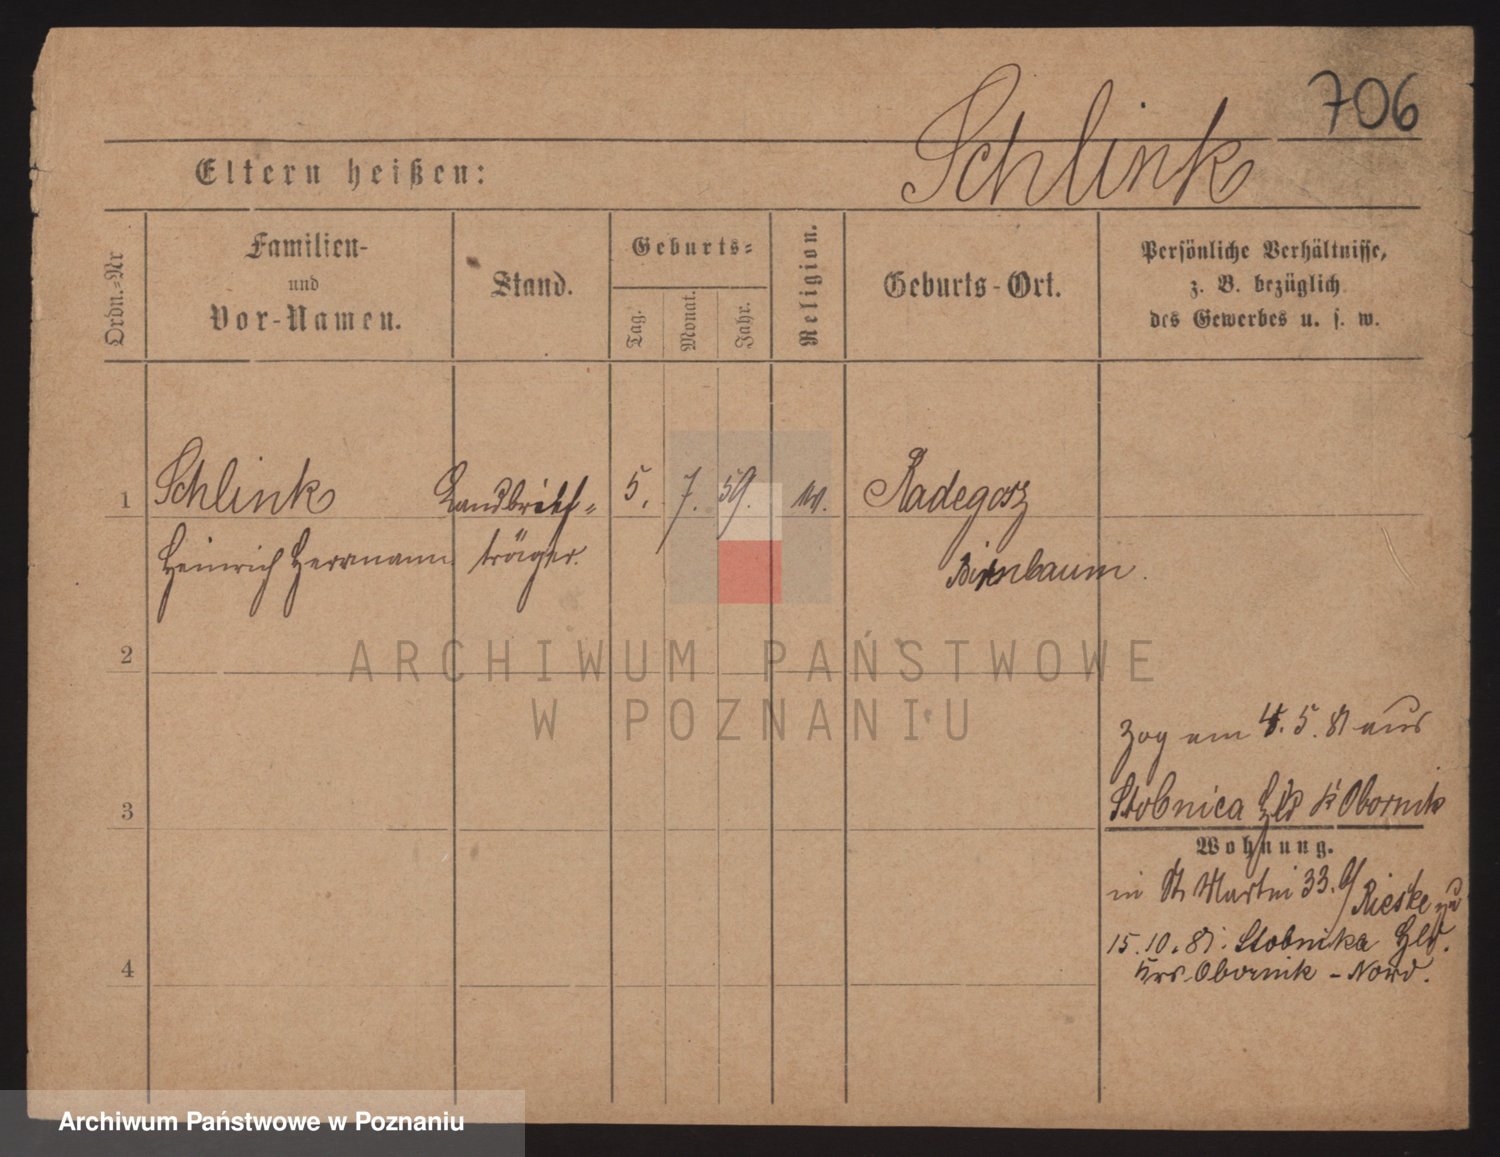 706
Schlink
Eltern heißen:
Ordn.=Nr
Familien-
und
Vor-Namen.
Stand.
Geburts=
Tag.
Monat.
Jahr.
Religion.
Geburts-Ort.
Persönliche Verhältnisse,
z. B. bezüglich
des Gewerbes u. s. w.
1
Schlink
Landbrief=
5.
7.
59.
Radegosz
Heinrich Herrmann
träger.
Birnbaum.
2
ARCHIWUM PAŃSTWOWE
W POZNANIU
zog am 4. 5. 81 aus
3
Stobnica Obornik
Wohnung.
in St Martin 33. Rieske
15. 10. 81. Stobnika
4
Krs. Obornik - Nord.
Archiwum Państwowe w Poznaniu